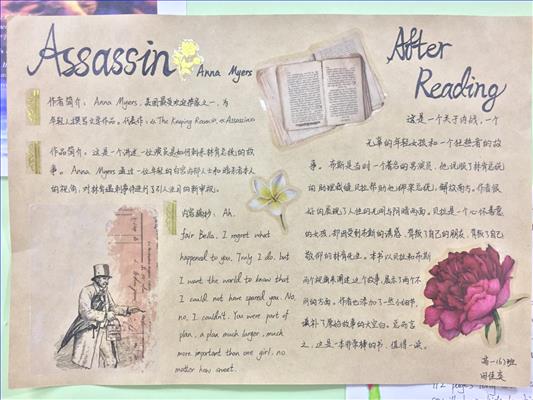 Assassin
Anna Myers
作者简介：Anna Myers，美国最受欢迎作家之一，为
年轻人撰写文学作品。代表作：《The Keeping Room》，《Assassin》
作品简介：这是一个讲述一位演员是如何刺杀林肯总统的故
事。Anna Myers 通过一位年轻的白宫内部人士和暗杀者本人
的视角，对林肯遇刺事件进行了引人注目的新审视。
内容摘抄：Ah,
fair Bella, I regret what
happened to you. Truly I do, but
I want the world to know that
I could not have spared you. No,
no, I couldn't. You were part of
plan, a plan much larger, much
more important than one girl, no
matter how sweet.
After
Reading
这是一个关于内战，一个
无辜的年轻女孩和一个狂热者的故
事。布斯是当时一个著名的男演员，他说服了林肯总统
的助理裁缝贝拉帮助他绑架总统，解放南方。作者很
好的展现了人性的光明与阴暗两面。贝拉是一个心怀善意
的女孩，却因受到布斯的诱惑，背叛了自己的朋友，背叛了自己
敬仰的林肯先生。本书以贝拉和布斯
两个视角来阐述这个故事，展示了两个不
同的方面。作者也添加了一些小细节，
填补了原始故事的大空白。总而言
之，这是一本非常棒的书，值得一读。
高一(6)班
田佳